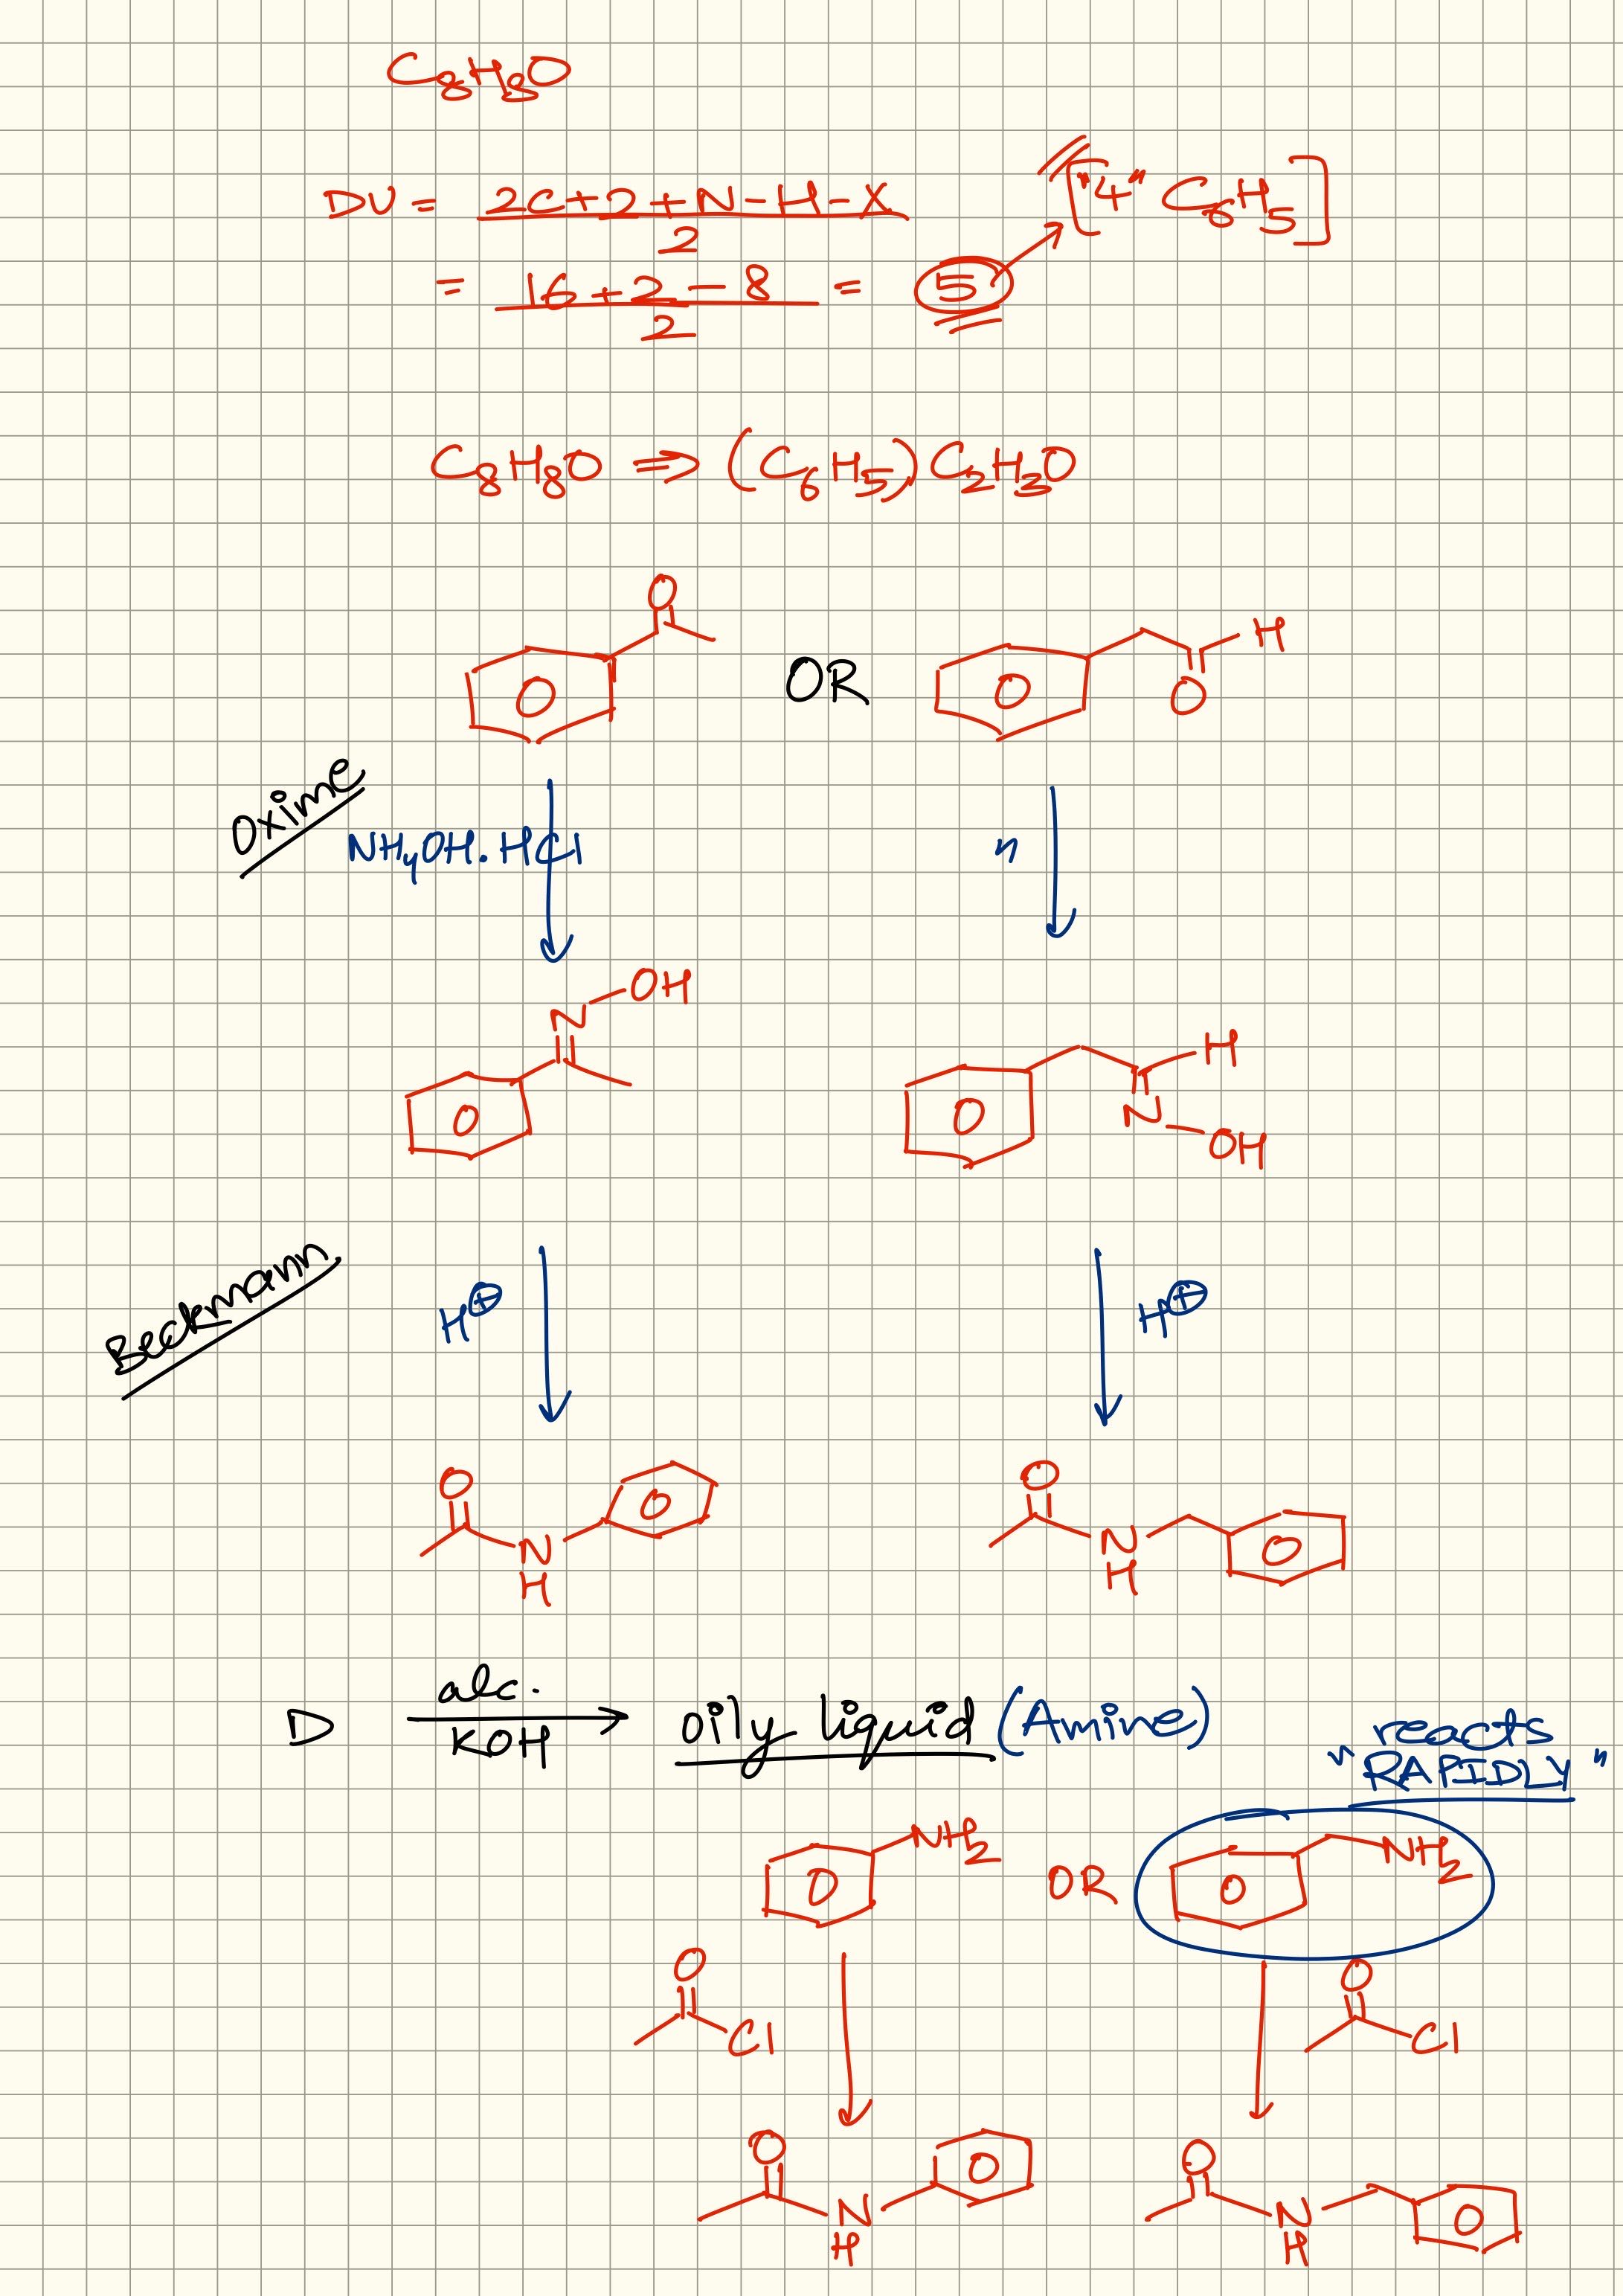 C8H8O
DU = 2C+2+N-H-X / 2
["4" C6H5]
= 16+2-8 / 2 = 5
C8H8O ⇒ (C6H5)C2H3O
O
OR
H
O
Oxime
NH4OH.HCl
"
N-OH
H
N
OH
Beckmann
H⊕
H⊕
O
N
H
O
N
H
D alc. KOH → oily liquid (Amine)
"reacts RAPIDLY"
NH2
OR
NH2
O
Cl
O
Cl
O
N
H
O
N
H